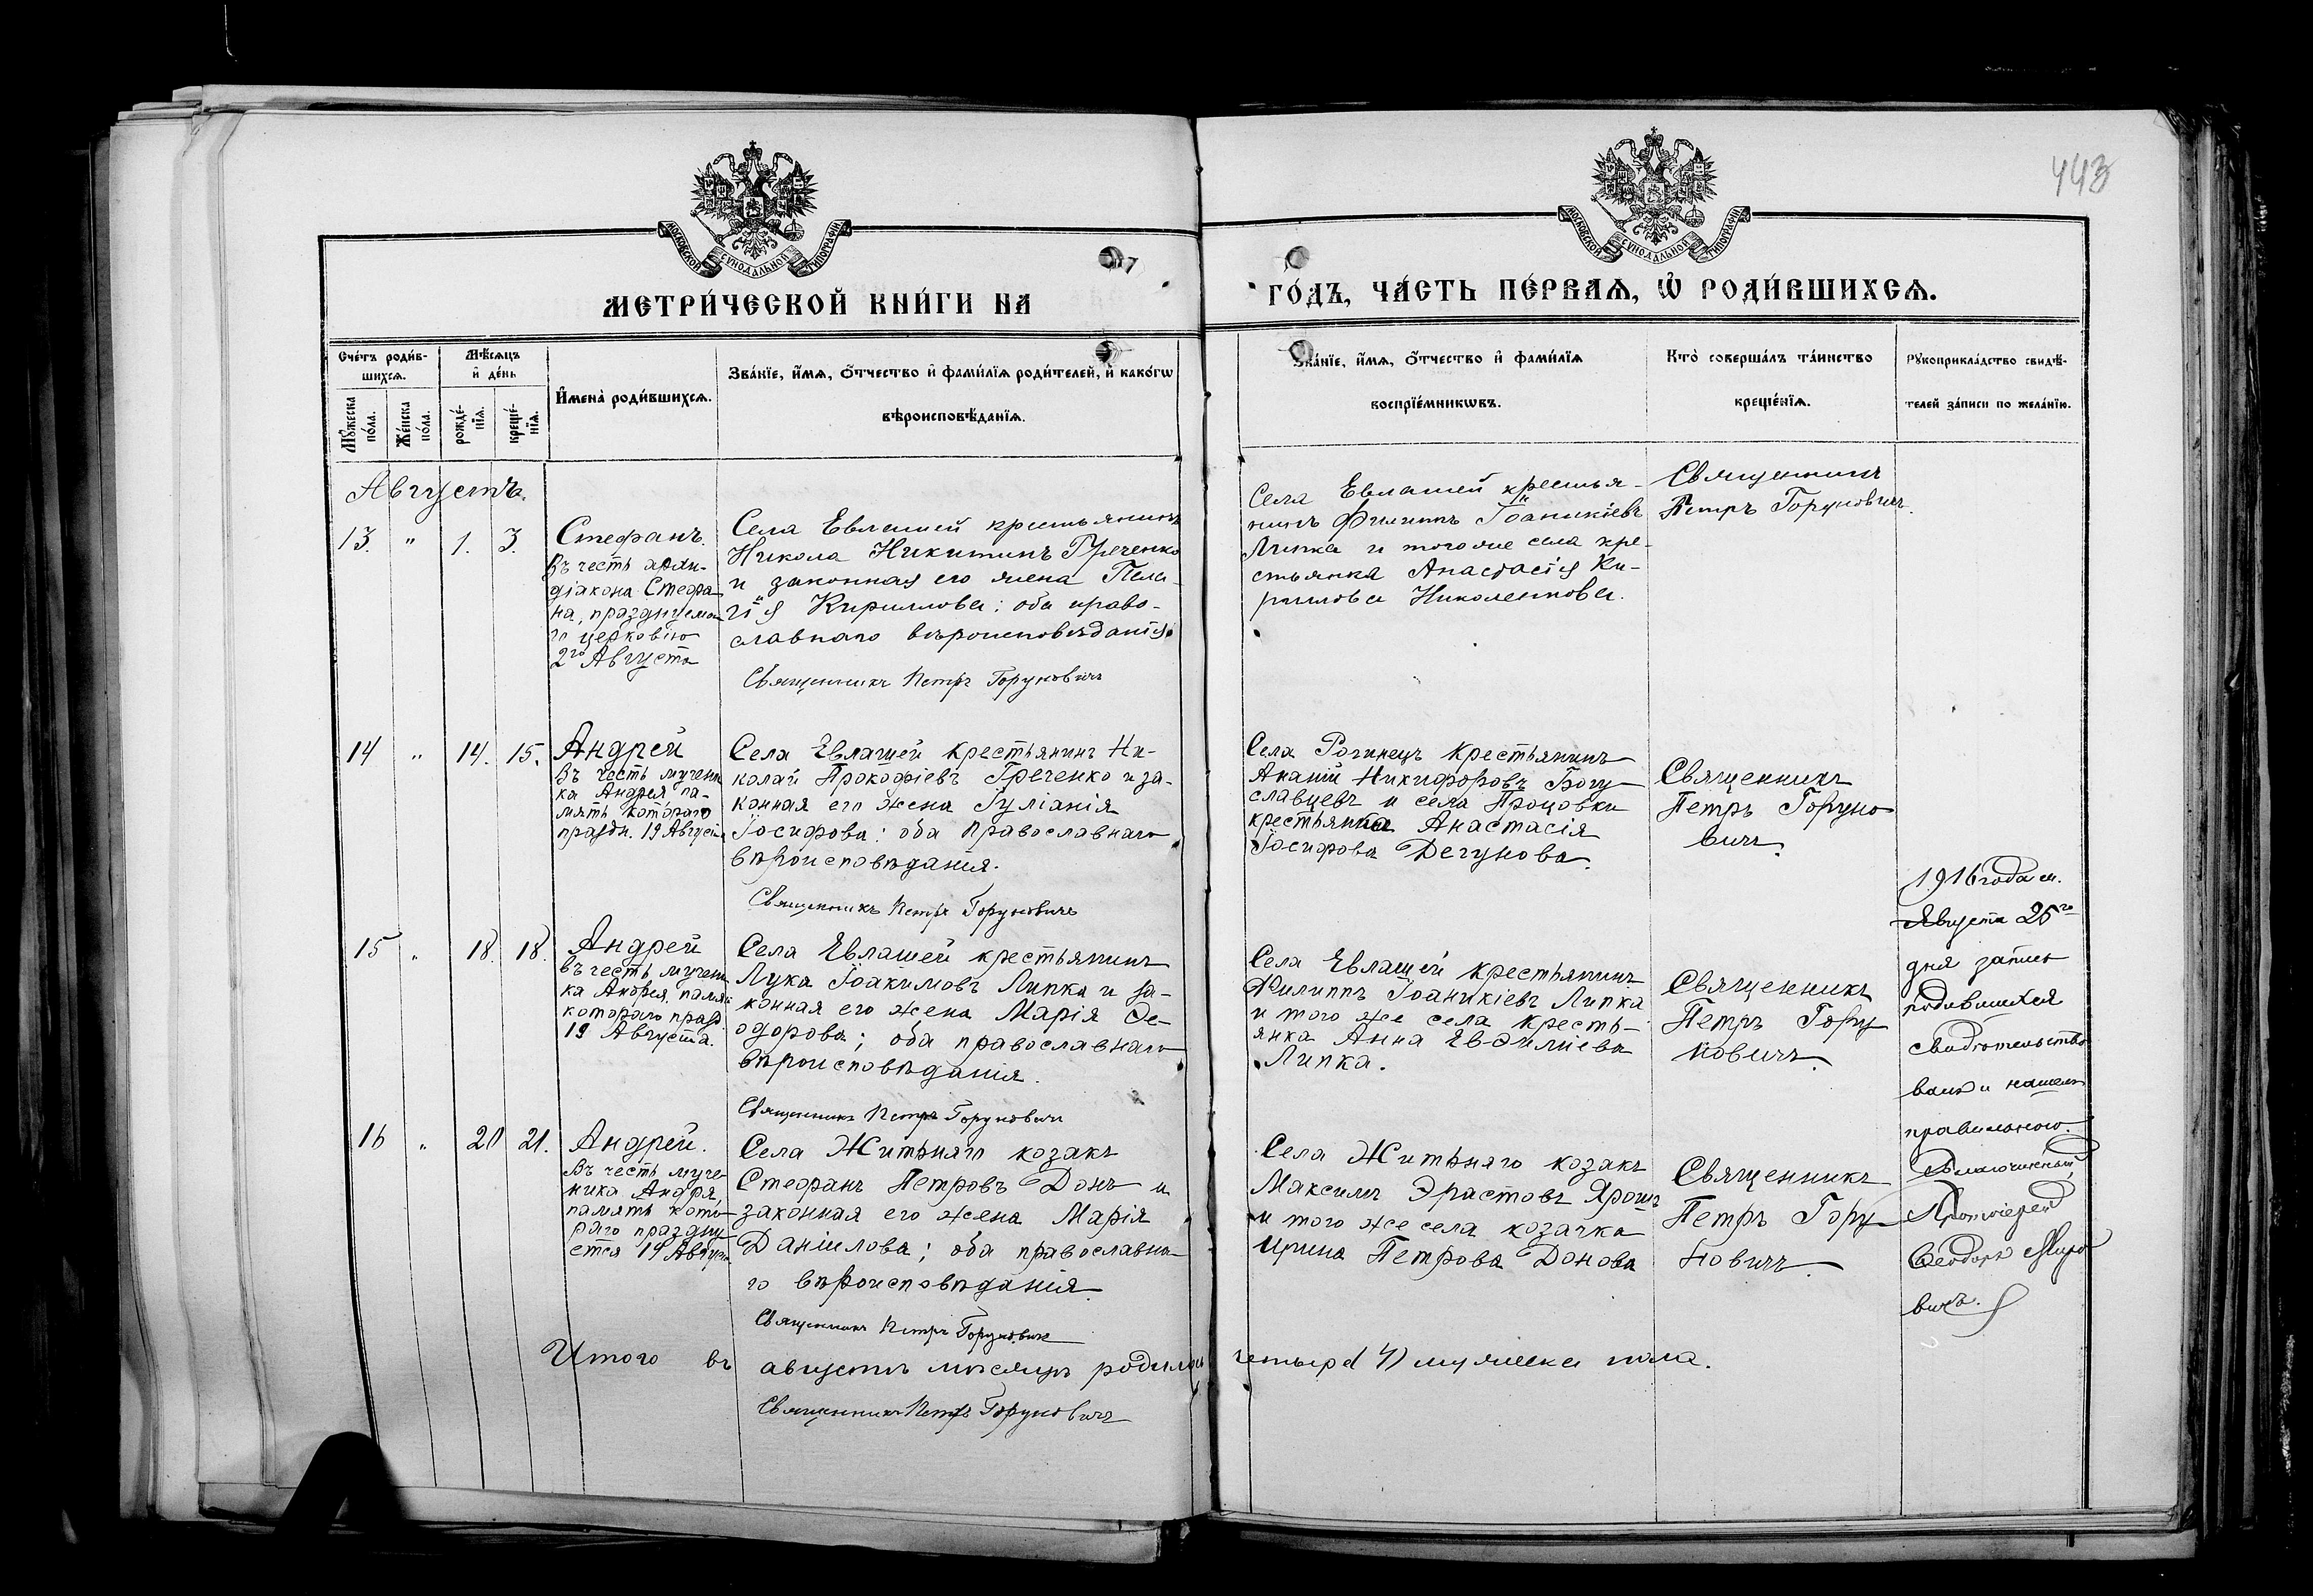 443
МОСКОВСКОЙ СѴНОДАЛЬНОЙ ТИПОГРАФІИ
МОСКОВСКОЙ СѴНОДАЛЬНОЙ ТИПОГРАФІИ
МЕТРИ́ЧЕСКОЙ КНИ́ГИ НА
ГО́ДЪ, ЧА́СТЬ ПЕ́РВАЯ, Ѡ РОДИ́ВШИХСЯ.
Сче́тъ роди́в-
шихся.
Му́жеска по́ла.
Же́нска по́ла.
Мѣ́сяцъ
и де́нь
рожде́-
нія.
креще́-
нія.
Имена̀ роди́вшихся.
Зва́нїе, и́мя, о́тчество и фами́лїя роди́телей, и како́гѡ
вѣроисповѣ́данїя.
Зва́нїе, и́мя, о́тчество и фами́лїя
воспрїе́мникѡвъ.
Кто̀ соверша́лъ та́инство
креще́нїя.
Рукоприкла́дство свидѣ́-
телей за́писи по жела́нїю.
Августъ.
13. " 1. 3.
Стефанъ.
Въ честь архи-
діакона Стефа
на, празднуемаг
го церковію
2го Августа
Села Евлашей крестьянинъ
Никола Никитинъ Греченко
и законная его жена Пела-
гія Кириллова; оба право-
славнаго вѣроисповѣданія
Священникъ Петръ Горуновичъ
Села Евлашей крестья-
нинъ Филиппъ Іоаникіевъ
Липка и того же села кре-
стьянка Анастасія Ки-
риллова Николенкова.
Священникъ
Петръ Горуновичъ.
14 " 14. 15.
Андрей
Въ честь мучени
ка Андрея па-
мять котораго
праздн. 19 Августа
Села Евлашей крестьянинъ Ни-
колай Прокофіевъ Греченко и за-
конная его жена Іуліанія
Іосифова: оба православнаго
вѣроисповѣданія.
Священникъ Петръ Горуновичъ
Села Рогинецъ крестьянинъ
Ананій Никифоровъ Богу
славцевъ и села Процовки
крестьянка Анастасія
Іосифова Дегунова.
Священникъ
Петръ Горуно
вичъ.
15 " 18. 18.
Андрей
въ честь мучени
ка Андрея, памят
котораго празд
19 Августа.
Села Евлашей крестьянинъ
Лука Іоакимовъ Липка и за-
конная его жена Марія Ѳе-
одорова; оба православнаго
вѣроисповѣданія.
Священникъ Петръ Горуновичъ
Села Евлашей крестьянинъ
Филиппъ Іоаникіевъ Липка
и того же села кресть-
янка Анна Ев-
Липка.
Священникъ
Петръ Гору
новичъ.
16 " 20 21.
Андрей.
Въ честь муче-
ника Андрея,
память кото-
раго праздну
ется 19 Августа
Села Житняго козакъ
Стефанъ Петровъ Донъ и
законная его жена Марія
Даніилова; оба православна-
го вѣроисповѣданія.
Священникъ Петръ Горуновичъ
Села Житняго козакъ
Максимъ Эрастовъ Ярошъ
и того же села козачка
Ирина Петрова Донова
Священникъ
Петръ Гору
новичъ.
1916 года м.
Августа 25го
дня запись
родившихся
свидѣтельство
валъ и нашелъ
правильною.
Благочинный
Протоіерей
Ѳеодоръ
вичъ.
Итого въ августѣ мѣсяцѣ родилось четыре 4) мужеска пола.
Священникъ Петръ Горуновичъ